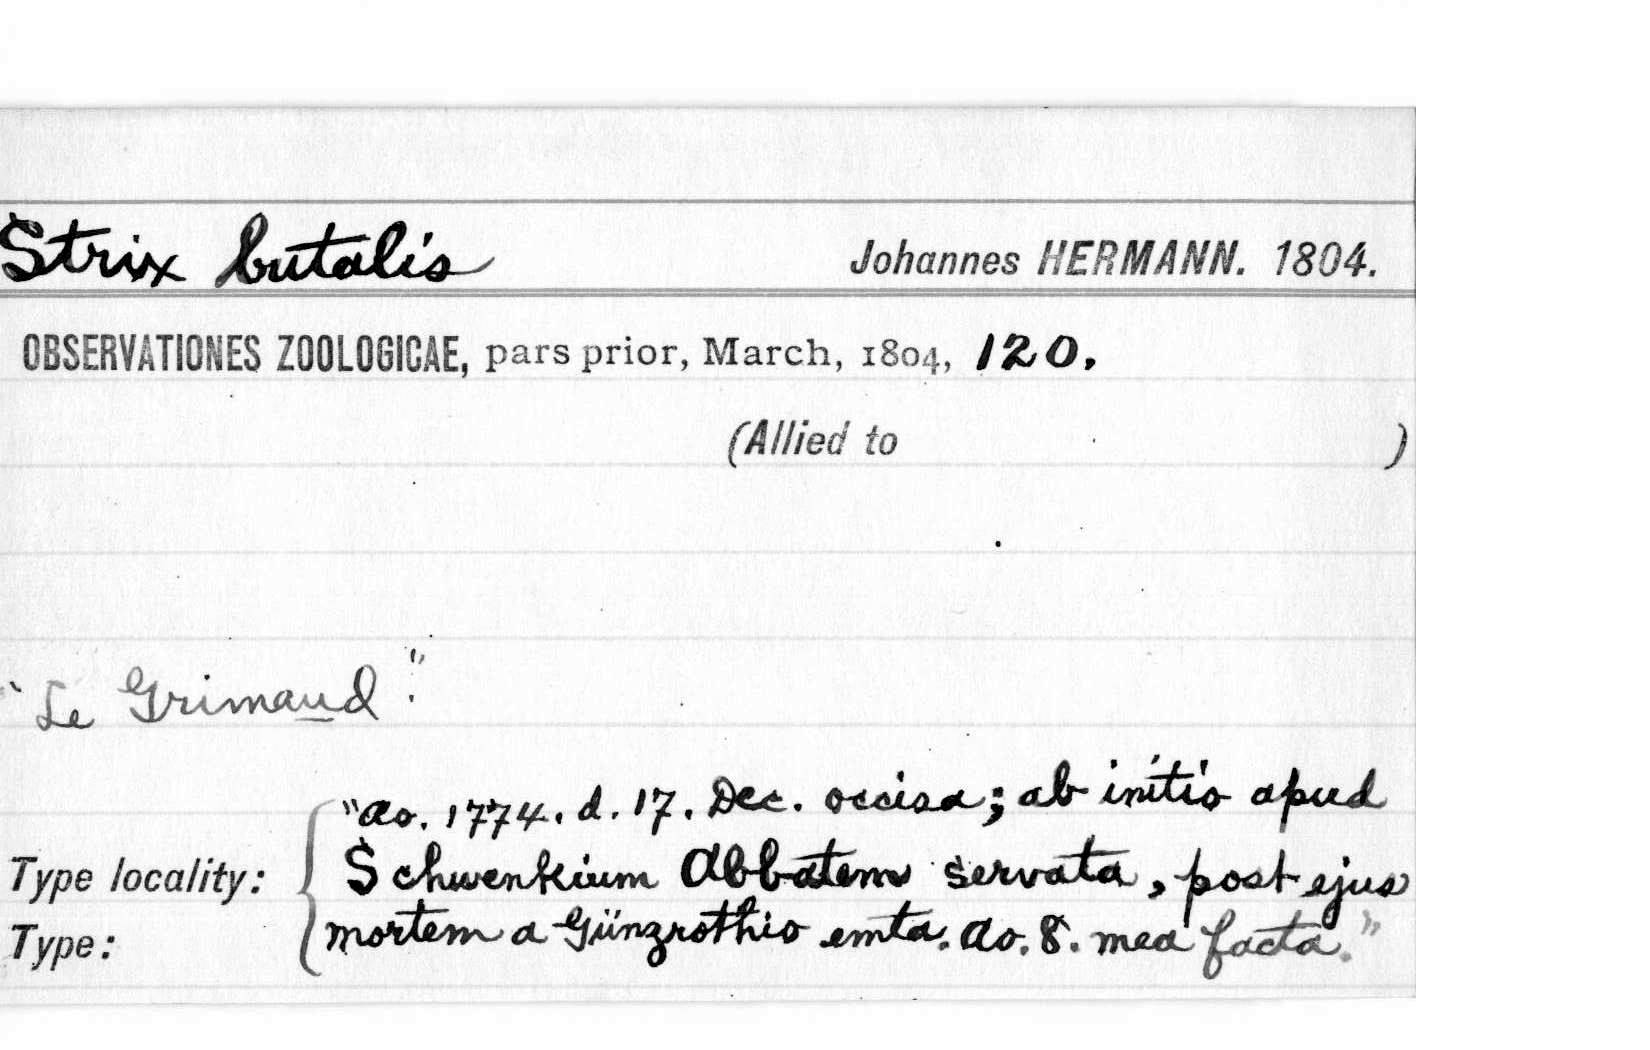 Strix butalis Johannes HERMANN. 1804.
OBSERVATIONES ZOOLOGICAE, pars prior, March, 1804, 120.
(Allied to )
"Le Grimaud".
"Ao. 1774. d. 17. Dec. occisa; ab initio apud
Type locality: Schwenkium Abbatem servata, post ejus
Type: mortem a Günzrothio emta. Ao. 8. mea facta."